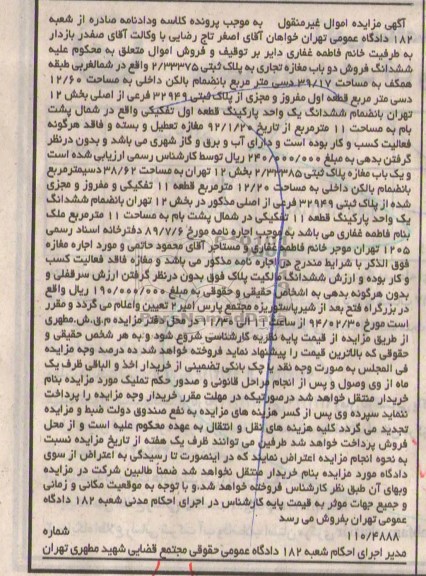 آگهی مزایده اموال غیرمنقول به موجب پرونده کلاسه ودادنامه صادره از شعبه
۱۸۲ دادگاه عمومی تهران خواهان آقای اصغر تاج رضایی با وکالت آقای صفدر بازدار
به طرفیت خانم فاطمه غفاری دایر بر توقیف و فروش اموال متعلق به محکوم علیه
ششدانگ فروش دو باب مغازه تجاری به پلاک ثبتی ۲/۲۳۳۷۵ واقع در شمالغربی طبقه
همکف به مساحت ۳۹/۱۷ دسی متر مربع بانضمام بالکن داخلی به مساحت ۱۲/۶۰
دسی متر مربع قطعه اول مفروز و مجزی از پلاک ثبتی ۳۲۹۴۹ فرعی از اصلی بخش ۱۲
تهران بانضمام ششدانگ یک واحد پارکینگ قطعه اول تفکیکی واقع در شمال پشت
بام به مساحت ۱۱ مترمربع از تاریخ ۹۲/۱/۲۰ مغازه تعطیل و بسته و فاقد هرگونه
فعالیت کسب و کار بوده است و دارای آب و برق و گاز شهری می باشد و بدون درنظر
گرفتن بدهی به مبلغ ۲۴۰/۰۰۰/۰۰۰ ریال توسط کارشناس رسمی ارزیابی شده است
و یک باب مغازه پلاک ثبتی ۲/۲۳۳۸۵ بخش ۱۲ تهران به مساحت ۳۸/۶۲ دسیمترمربع
بانضمام بالکن داخلی به مساحت ۱۲/۲۰ مترمربع قطعه ۱۱ تفکیکی و مفروز و مجزی
شده از پلاک ثبتی ۳۲۹۴۹ فرعی از اصلی مذکور در بخش ۱۲ تهران بانضمام ششدانگ
یک واحد پارکینگ قطعه ۱۱ تفکیکی در شمال پشت بام به مساحت ۱۱ مترمربع ملک
بنام فاطمه غفاری می باشد به موجب اجاره نامه مورخ ۸۹/۷/۶ دفترخانه اسناد رسمی
۱۲۰۵ تهران موجر خانم فاطمه غفاری و مستأجر آقای محمود حاتمی و مورد اجاره مغازه
فوق الذکر با شرایط مندرج در اجاره نامه مذکور می باشد و مغازه فاقد فعالیت کسب
و کار بوده و ارزش ششدانگ مالکیت پلاک فوق بدون درنظر گرفتن ارزش سرقفلی و
بدون هرگونه بدهی به اشخاص حقیقی و حقوقی به مبلغ ۱۹۰/۰۰۰/۰۰۰ ریال واقع
در بزرگراه فتح بعد از شیرپاستوریزه مجتمع پارس امیر۲ تعیین واعلام می گردد و مقرر
است مورخ ۹۴/۰۲/۳۰ از ساعت ۱۱ الی ۱۱/۳۰ در محل دفتر مزایده م.ق.ش.مطهری
از طریق مزایده از قیمت پایه نظریه کارشناسی شروع شود و به هر شخص حقیقی و
حقوقی که بالاترین قیمت را پیشنهاد نماید فروخته خواهد شد ده درصد وجه مزایده
فی المجلس به صورت وجه نقد یا چک بانکی تضمینی از خریدار اخذ و الباقی ظرف یک
ماه از وی وصول و پس از انجام مراحل قانونی و صدور حکم تملیک مورد مزایده بنام
خریدار منتقل خواهد شد درصورتیکه در مهلت مقرر خریدار وجه مزایده را پرداخت
ننماید سپرده وی پس از کسر هزینه های مزایده به نفع صندوق دولت ضبط و مزایده
تجدید می گردد کلیه هزینه های نقل و انتقال به عهده محکوم علیه است و از محل
فروش پرداخت خواهد شد طرفین می توانند ظرف یک هفته از تاریخ مزایده نسبت
به نحوه انجام مزایده اعتراض نمایند که در اینصورت تا رسیدگی به اعتراض از سوی
دادگاه مورد مزایده بنام خریدار منتقل نخواهد شد ضمناً طالبین شرکت در مزایده
وبهای آن طبق نظر کارشناس فروخته خواهد شد.و با توجه به موقعیت مکانی و زمانی
و جمیع جهات موثر به قیمت پایه کارشناس در اجرای احکام مدنی شعبه ۱۸۲ دادگاه
عمومی تهران بفروش می رسد
۱۱۰/۴۸۸۸ شماره
مدیر اجرای احکام شعبه ۱۸۲ دادگاه عمومی حقوقی مجتمع قضایی شهید مطهری تهران